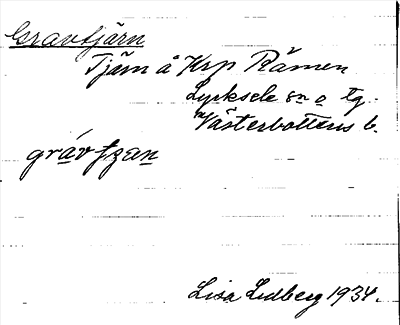 Gravtjärn
Tjärn å Krp Rämen
Lycksele sn o tg.
Västerbottens l.
grávtʒan
Lisa Lidberg 1934.